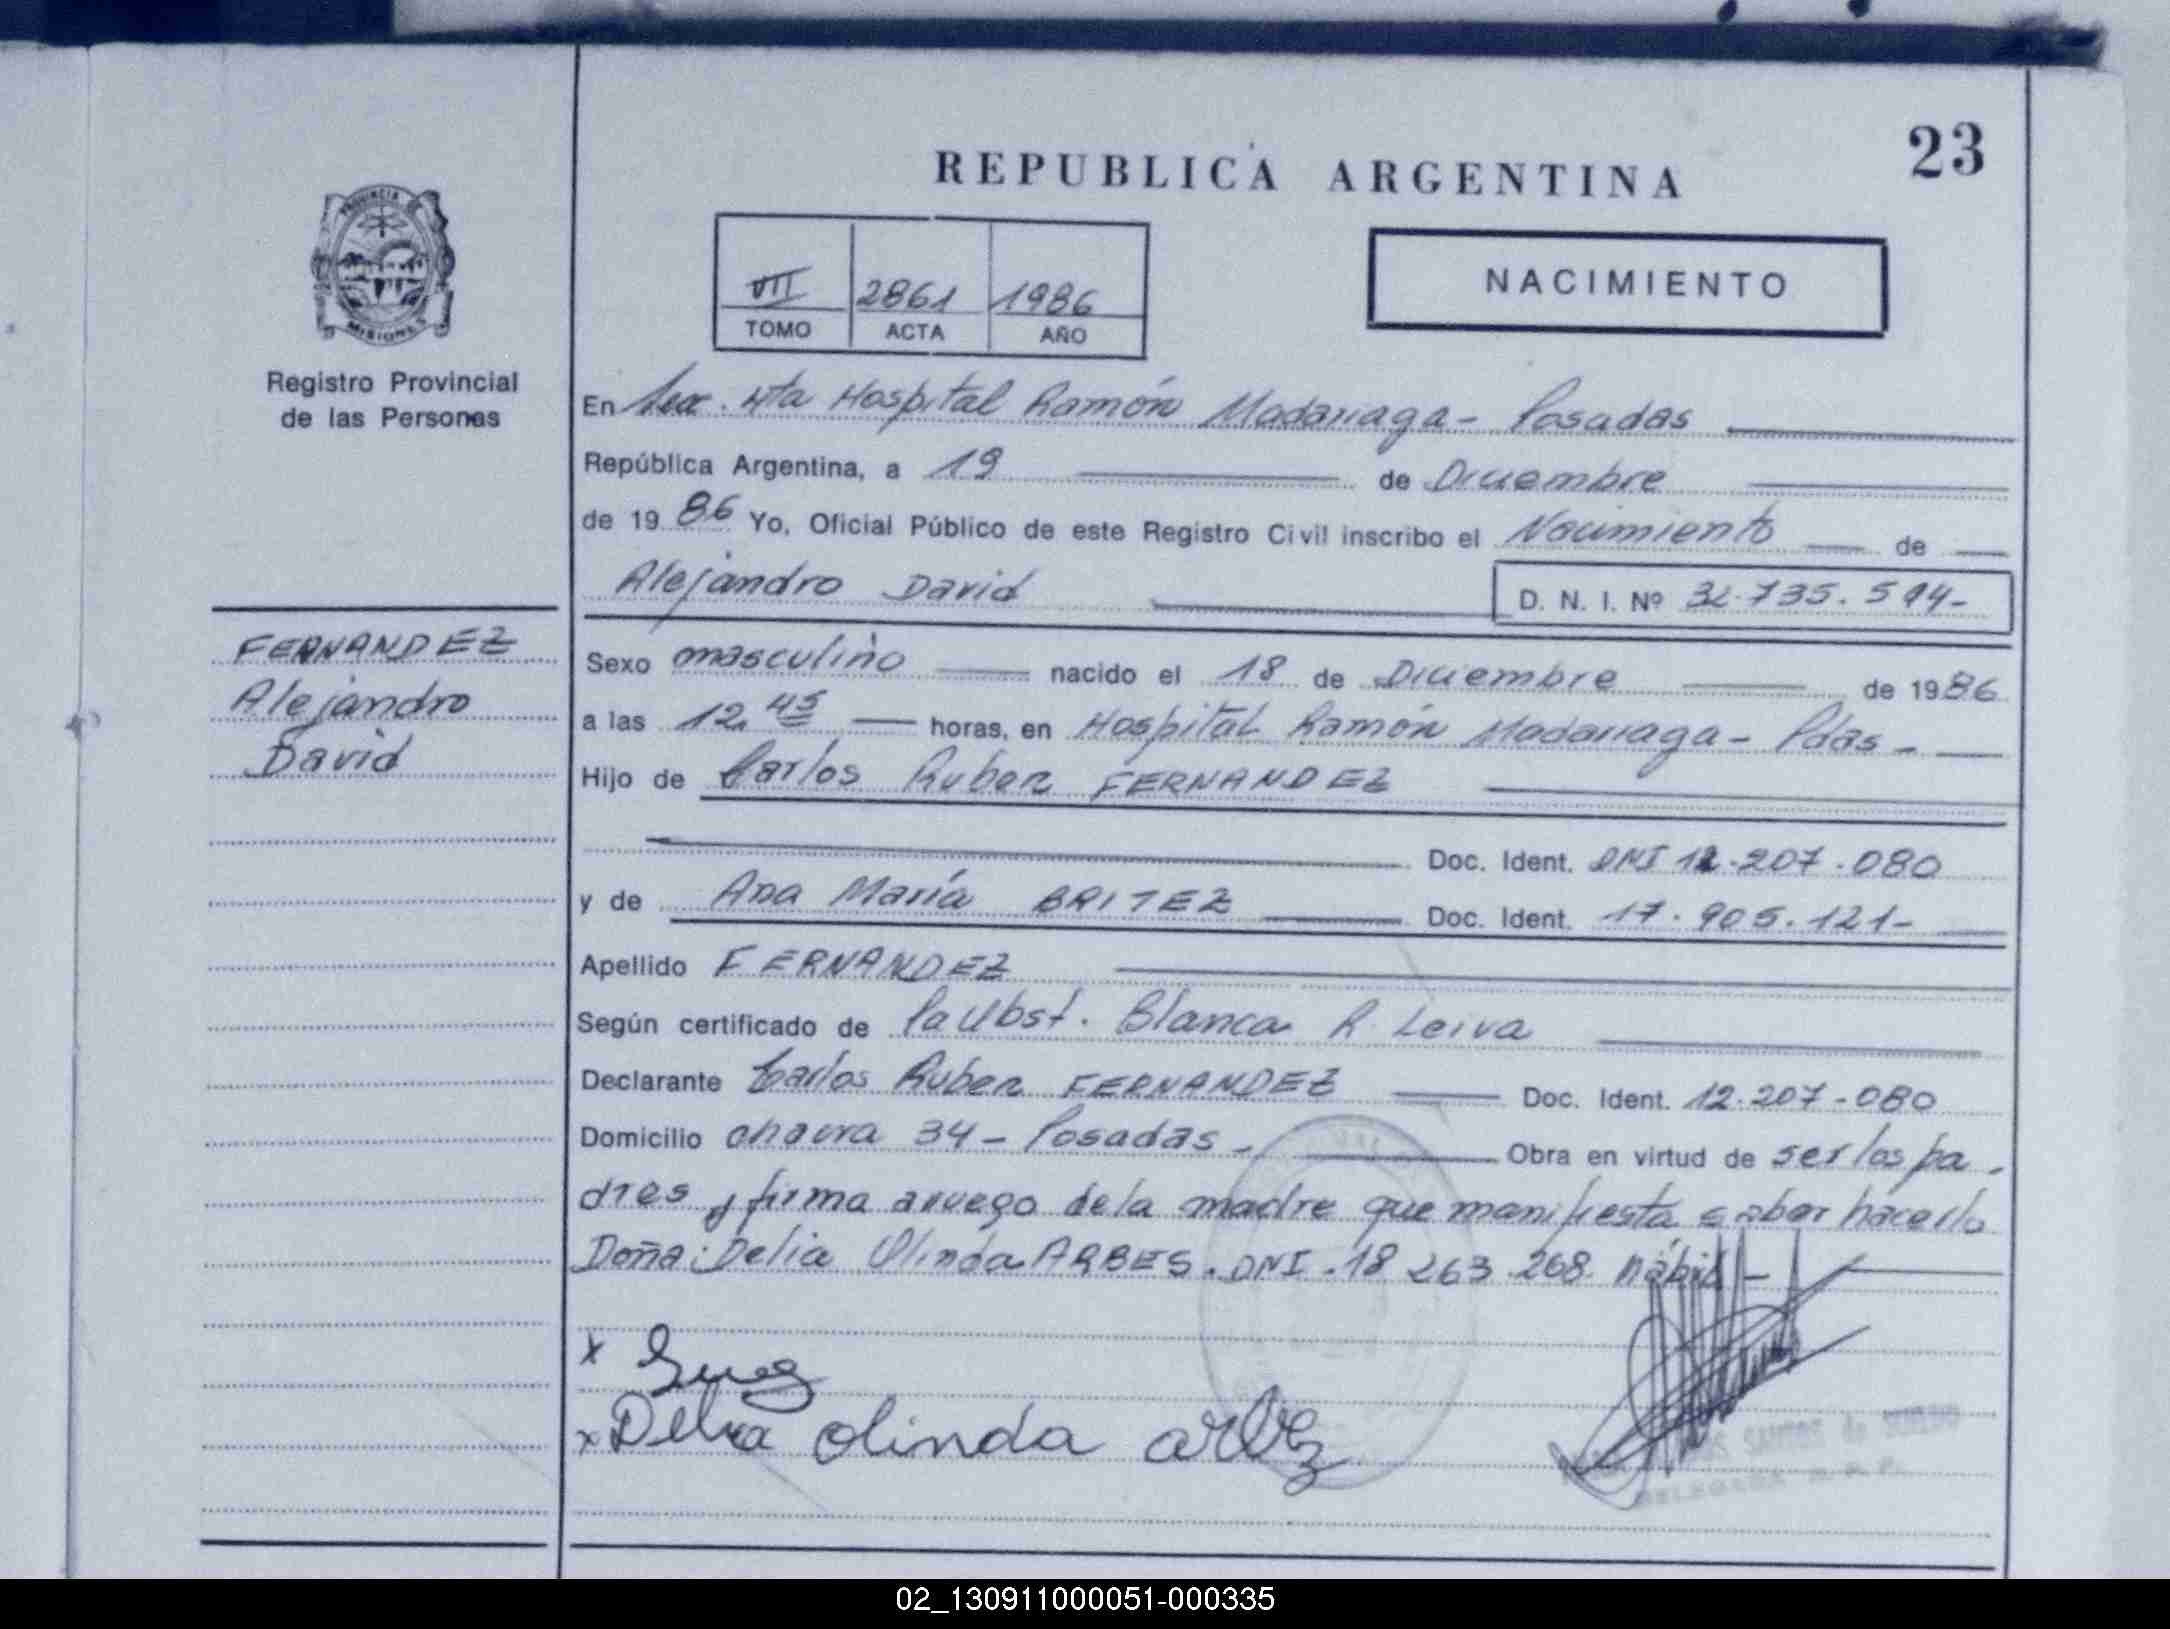 23
REPUBLICA ARGENTINA
PROVINCIA DE
MISIONES
Registro Provincial
de las Personas
VII 2861 1986
TOMO ACTA AÑO
NACIMIENTO
En Sec. 4ta Hospital Ramón Madariaga - Posadas
República Argentina, a 19 de Diciembre
de 1986 Yo, Oficial Público de este Registro Civil inscribo el Nacimiento de
Alejandro David D. N. I. Nº 32.735.594-
FERNANDEZ
Alejandro
David
Sexo masculino nacido el 18 de Diciembre de 1986
a las 12.45 horas, en Hospital Ramón Madariaga - Pdas -
Hijo de Carlos Ruben FERNANDEZ
Doc. Ident. DNI 12.207.080
y de Ana María BRITEZ Doc. Ident. 17.905.121-
Apellido FERNANDEZ
Según certificado de la Obst. Blanca R. Leiva
Declarante Carlos Ruben FERNANDEZ Doc. Ident. 12.207.080
Domicilio chacra 34 - Posadas - Obra en virtud de ser los pa
dres y firma aruego de la madre que manifiesta saber hacerlo
Doña: Delia Olinda ARBES. DNI. 18 263.268. hábil -
x
x Delia olinda
SANTOS de
DELEGADA R. P. P.
02_130911000051-000335